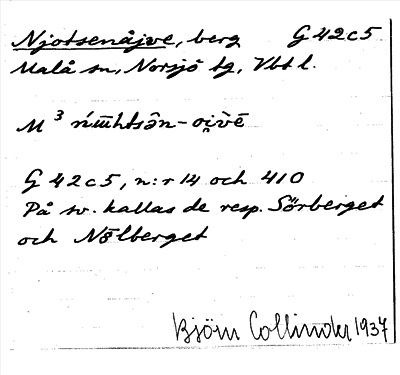 Njotsenåjve, berg G 42 c 5
Malå sn, Norsjö tg, Vbt l.
M ³ ńūhtsā̂n-oi̯vē
G 42 c 5, n:r 14 och 410
På sv. kallas de resp. Sörberget
och Nǫlberget
Björn Collinder 1937